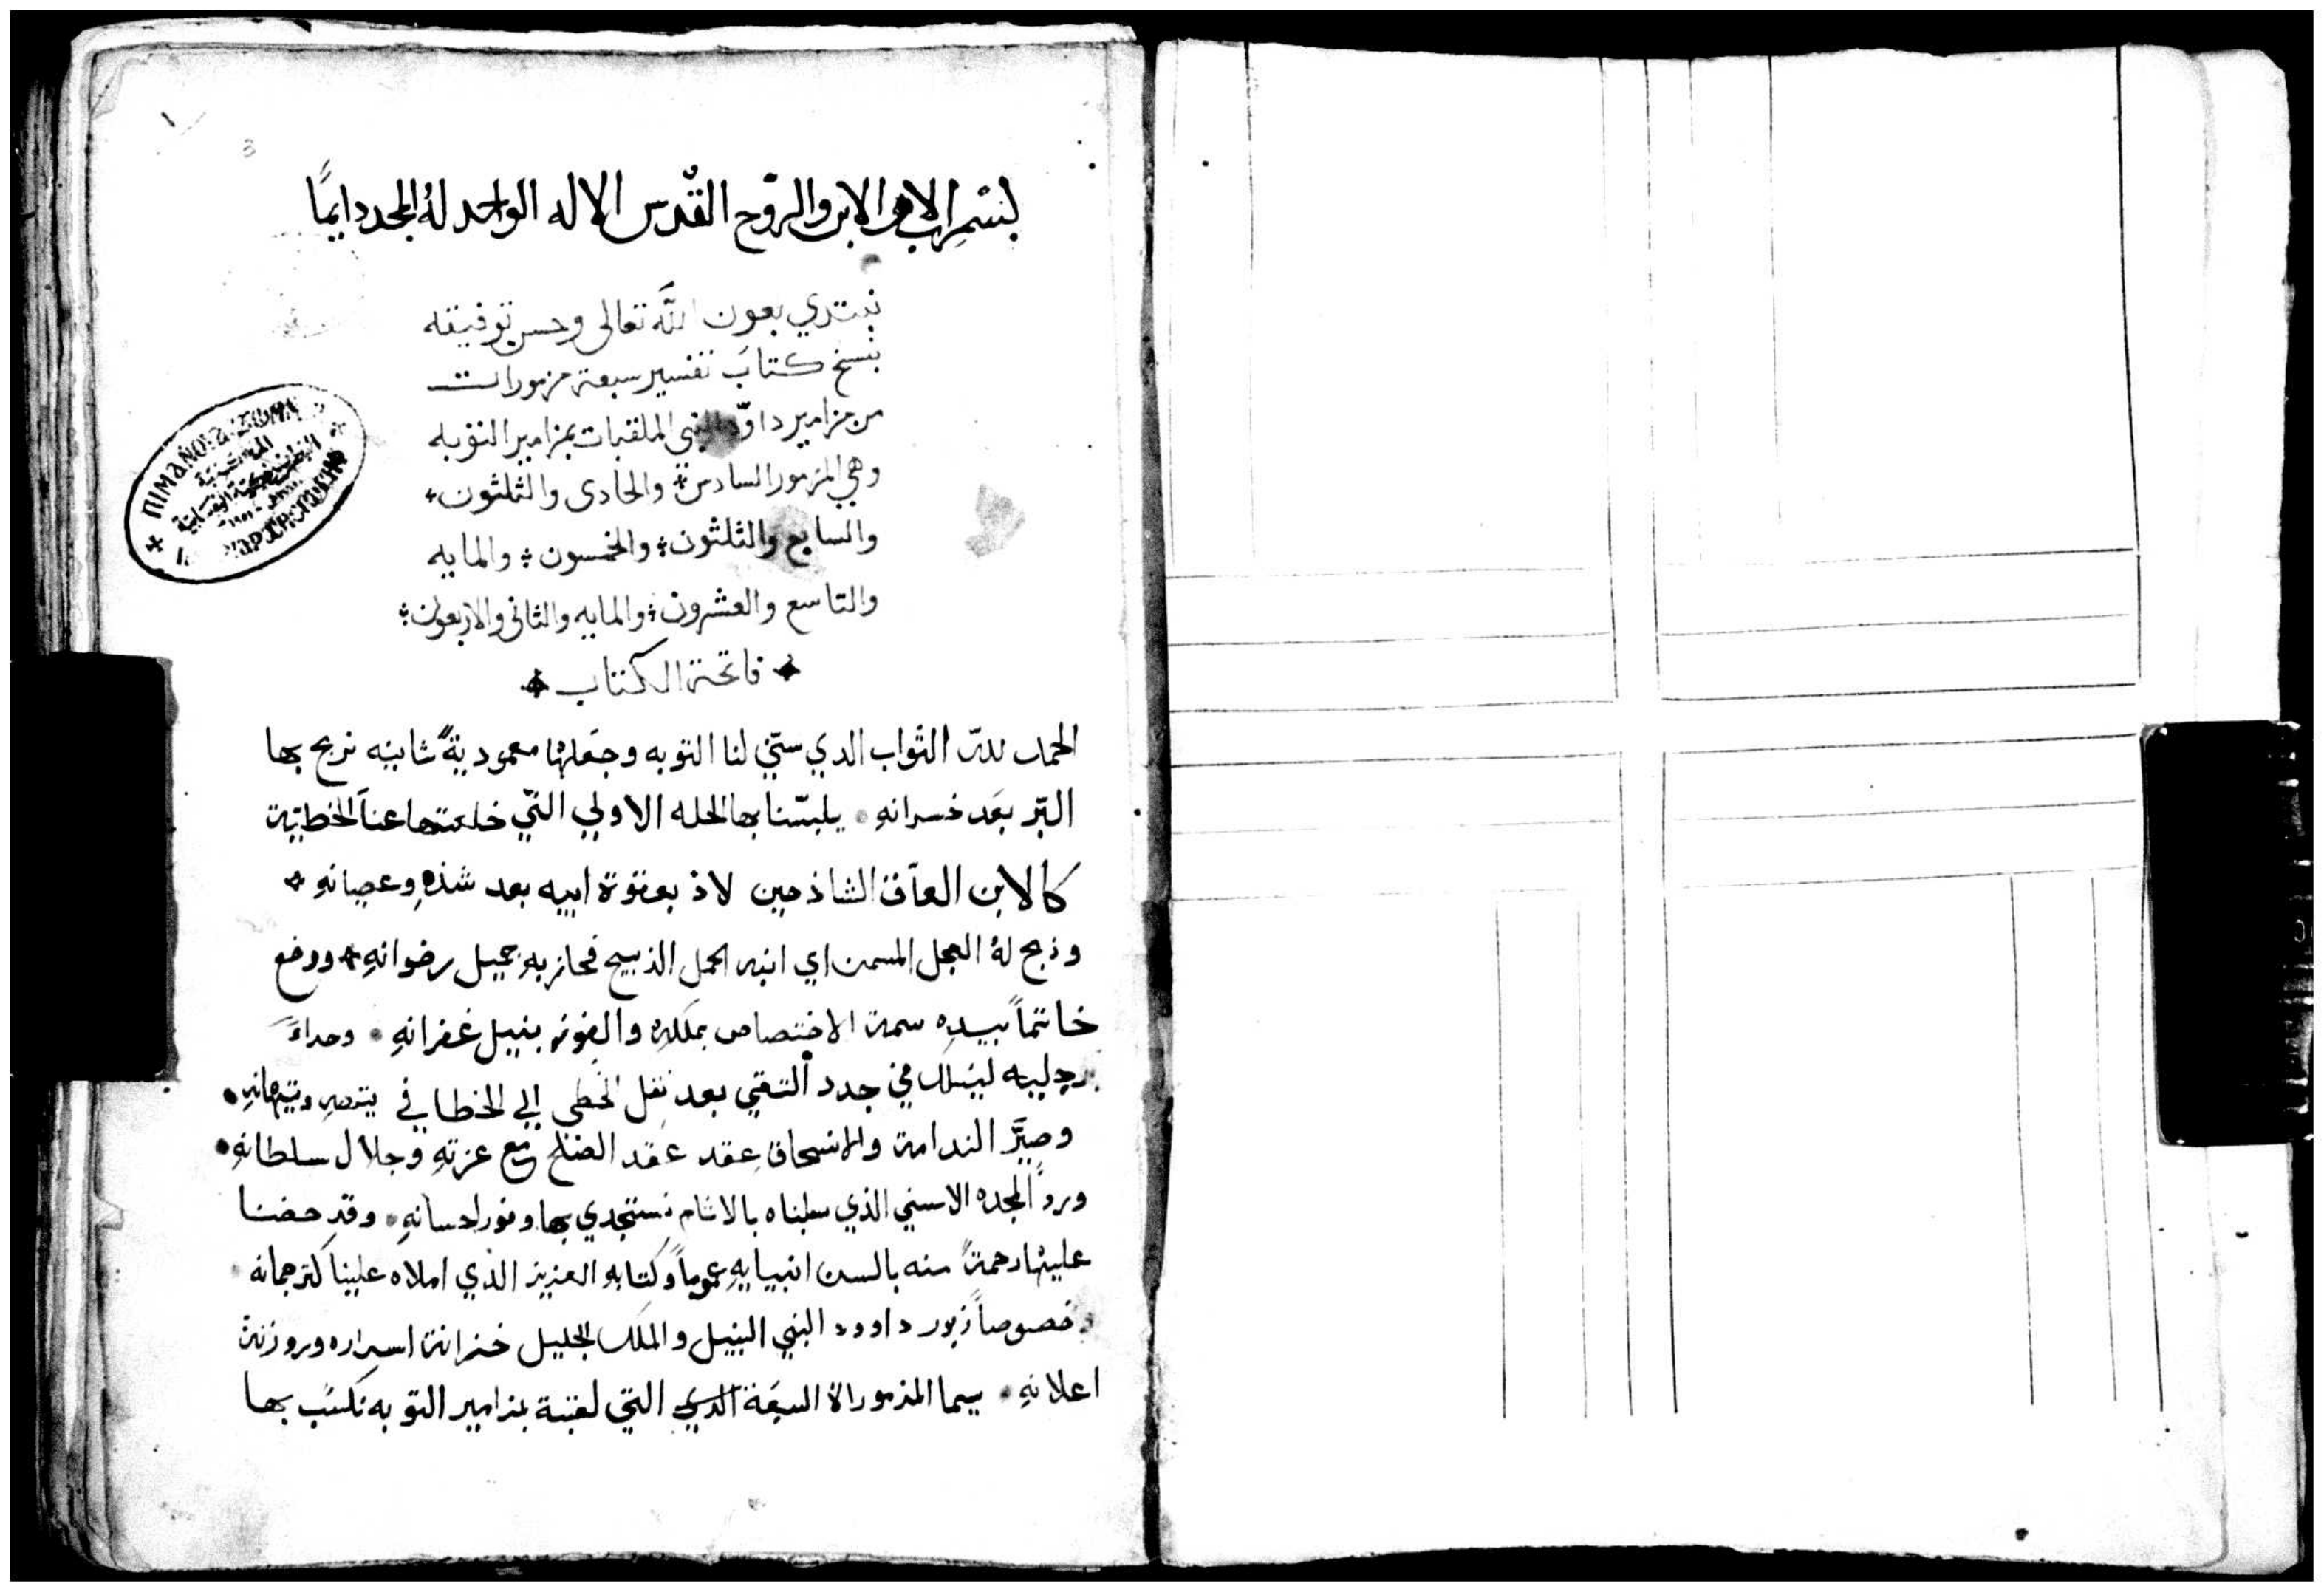 بسْمِ الاب والابن والروّح القُدس الاله الواحد لهُ المجد دايمًا
نبتدي بعون اللّه تعالى وحسن توفيقه
بنسخ كتاب تفسير سبعة مزمورات
من مزامير داوّد النبي الملقبات بمزامير التوبه
وهي المزمور السادس والحادى والثلثون
والسابع والثلثون والخمسون والمايه
والتاسع والعشرون والمايه والثانى والاربعون
فاتحة الكتاب
الحمد لله التواب الدي سنّ لنا التوبه وجعلها معموديةً ثانيه نربح بها
البّر بعَد خسرانهِ يلبسّنا بها الحله الاولي التّي خلعتها عنا الخطيّة
كالابن العآق الشاذ حين لاذ بعقوة ابيه بعد شذهِ وعصيانهِ
وذبح لهُ العجل المسمن اي ابنه الحمل الذبيح فحاز بهِ جميل رضوانهِ ووضع
خاتماً بيدهِ سمة الاختصاص بملكهِ والفوز بنيل غفرانهِ وحداءَ
برجليه ليسلك في جدد التقي بعد نقل الخُطى الي الخطا في
وصيَّر الندامة والانسحاق عقد عَقد الصلح مع عزتهِ وجلال سلطانهِ
وردّ المجده الاسني الذي سلبناه بالاثام نستجدي بها وفور احسانهِ وقد حضنا
عليها رحمةً منه بالسن انبيايهِ عموماً وكتابهِ العزيز الذي املاه علينا كترجمانه
خصوصاً زبور داوود النبي النبيل والملك الجليل خزانة اسراره وروزنة
اعلانهِ سيما المزموراة السبعَة الدي التي لقبة بمزامير التوبه نكسَب بها